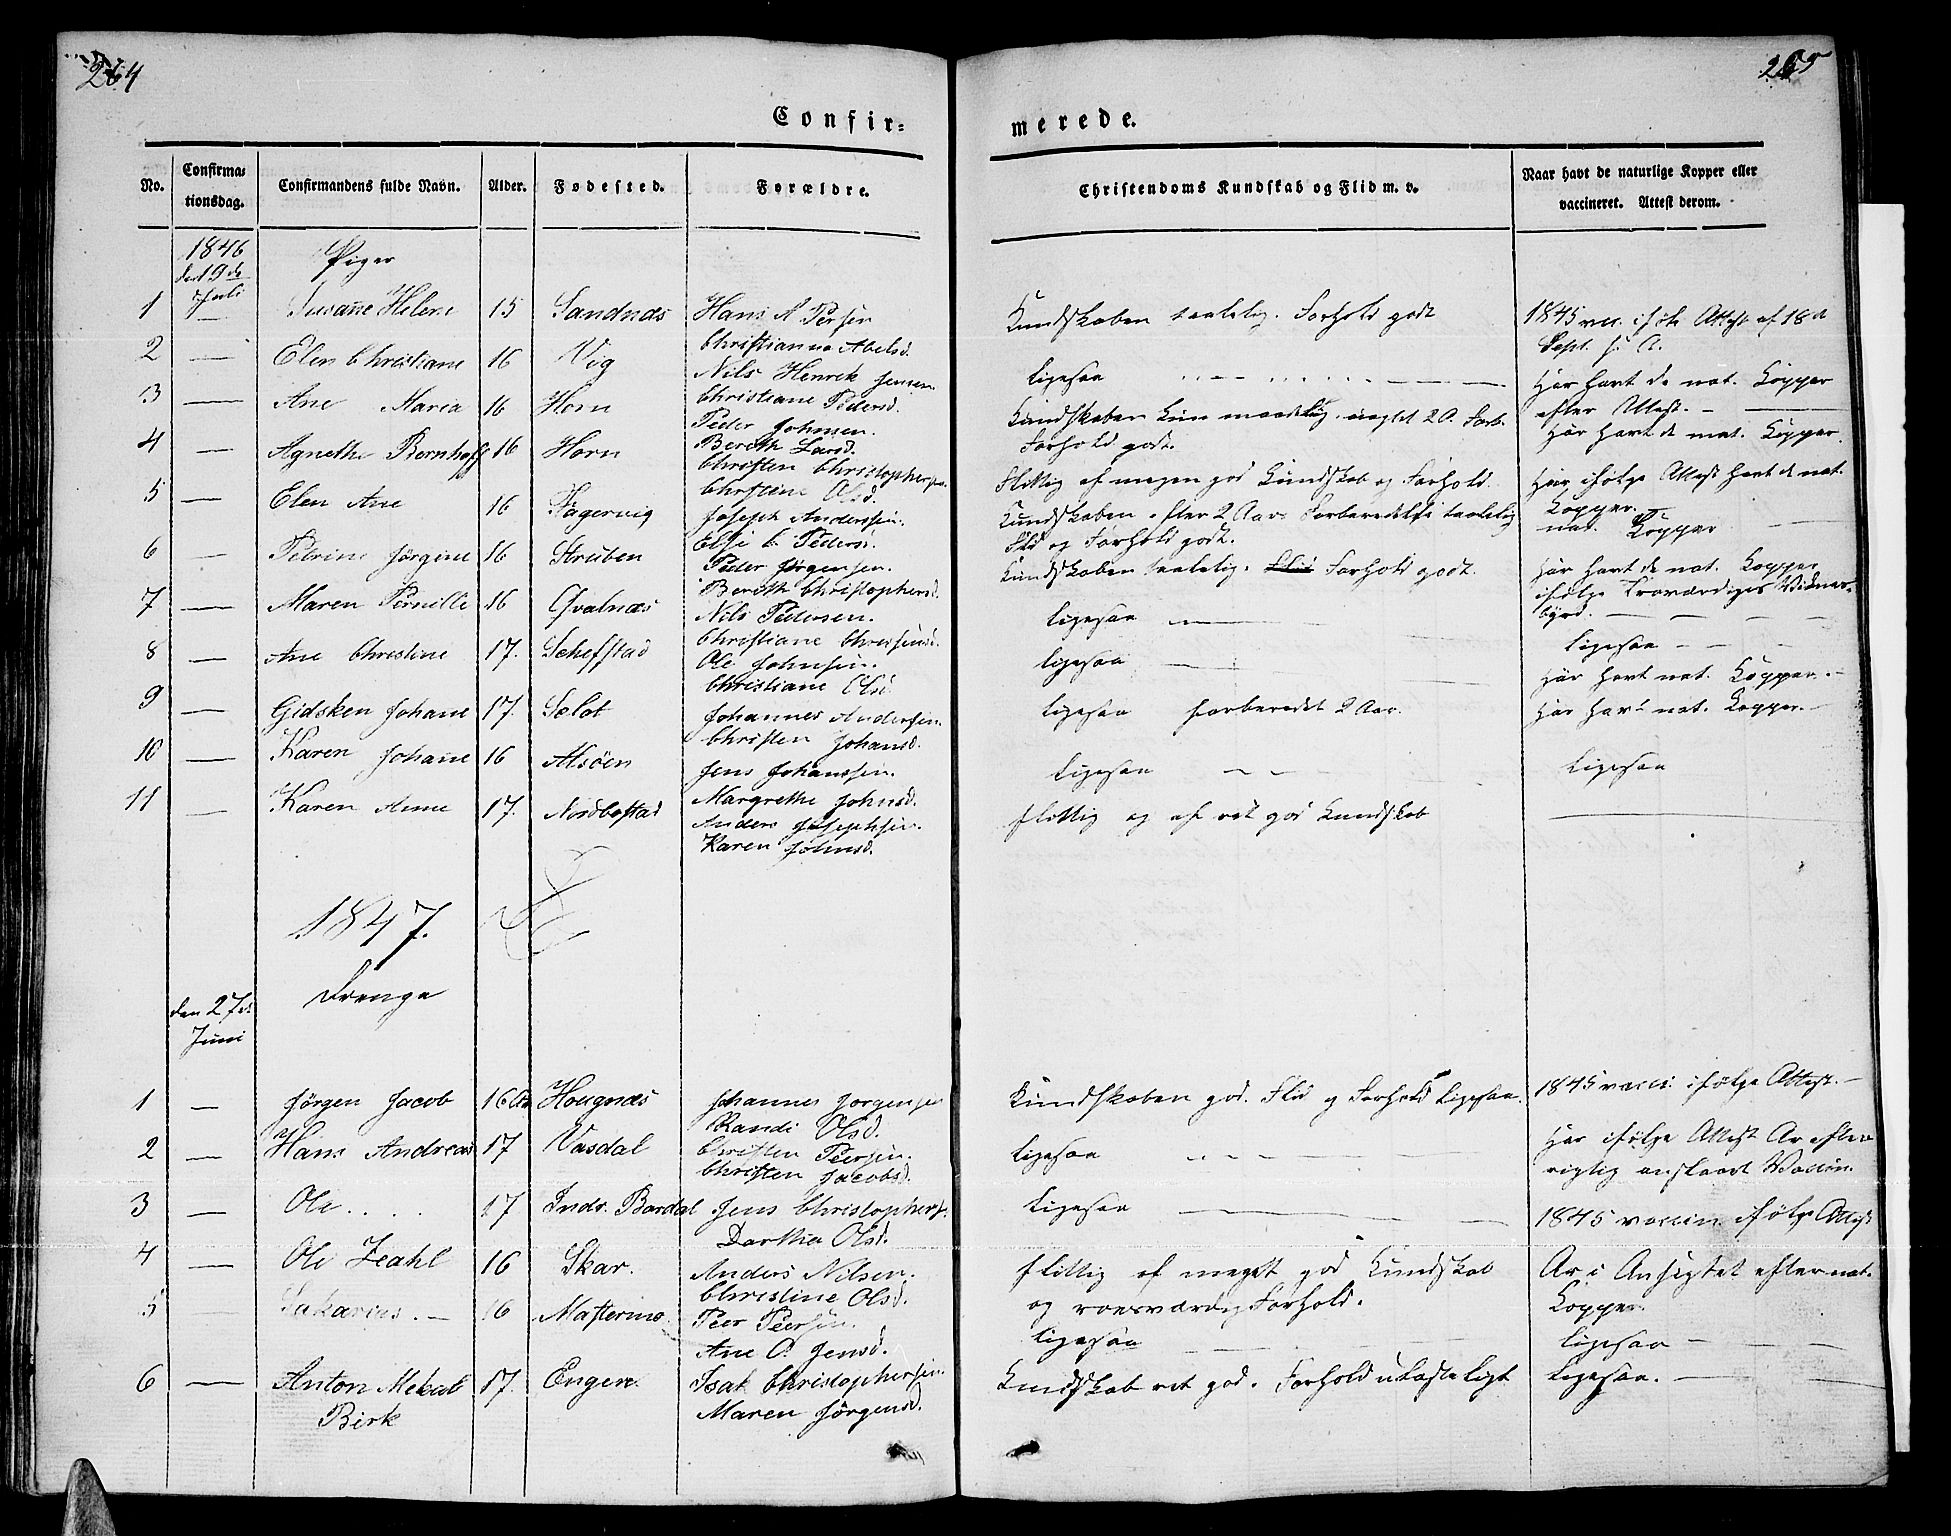 264
265
Confir=
merede.
No. Confirma=tionsdag. Confirmandens fulde Navn. Alder. Fødested. Forældre. Christendoms Kundskab og Flid m. v. Naar havt de naturlige Kopper eller vaccineret. Attest derom.
1846
den 19de Juli
Piger
1 — Susanne Helene 15 Sandnæs Hans A Persen Christianna Abelsd. Kundskaben taalelig. Forhold godt 1845 vac. ifølge Attest af 18d Sept. s. A.
2 — Elen Christiane 16 Vig Nils Henrik Jensen Christiane Pedersd. Ligesaa Har havt de nat. Kopper efter Attest.
3 — Ane Maria 16 Horn Peder Johnsen. Bereth Larsd. Kundskaben kun maadelig. nogtet 2 A. Forb. Forhold godt. Har havt de nat. Kopper.
4 — Agnethe Bernhoff 16 Horn Christen Christophersen Christine Olsd. Flittig af megen god Kundskab og Forhold. Har ifølge Attest havt de nat. Kopper.
5 — Elen Ane 16 Fagervig Joseph Anderssen. Elsje C. Peders. Kundskaben efter 2 Aars Forberedelse taalelig Flid og Forhold godt. nat. Kopper
6 — Petrine Jørgine 16 Struben Peder Jørgensen. Bereth Christophersd. Kundskaben taalelig. Flid Forhold godt. Har havt de nat. Kopper ifølge troværdiges Vidnes-byrd.
7 — Maren Pernille 16 Qvalnæs Nils Pedersen. Christiane Ligesaa
8 — Ane Christine 17. Scheffstad Ole Johnsen. Christiane Olsd. Ligesaa Ligesaa Har havt nat. Kopper.
9 — Gidsken Johane 17. Seløt Johannes Andersen. Christen Johansd. Ligesaa forberedet 2 Aar. Har havt nat. Kopper.
10 — Karen Johane 16 Alsöen Jens Johanssen. Margrethe Johnsd. Ligesaa Ligesaa
11 — Karen Anne 17. Nordbostad Anders Josephsen. Karen Johnsd. flittig og af ret god Kundskab
1847.
den 27de Juni
Drenge
1 — Jørgen Jacob 16 Hougnæs Johannes Jørgensen Randi Olsd. Kundskaben god. Flid og Forhold Ligesaa. 1845 vacci. ifølge Attest.
2 — Hans Andreas 17 Vasdal Christen Peersen. Christen Jacobsd. Ligesaa Har ifølge Attest Ar efter rigtig anslaaet Vaccin.
3 — Ole 17 Indr. Bardal Jens Christophers. Dorthea Olsd. Ligesaa 1845 vaccin. ifølge Attest
4 — Ole Zeahl 16 Skar. Anders Nilsen. Christine Olsd. flittig af meget god Kundskab og roesværdig Forhold. Ar i Ansigtet efter nat. Kopper.
5 — Sakarias. 16 Masterino Peer Peersen. Ane O. Jensd. Ligesaa Ligesaa
6 — Anton Mekal Birk 17. Engen. Isak Christophersen. Maren Jørgensd. Kundskab ret god. Forhold ulasteligt Ligesaa.